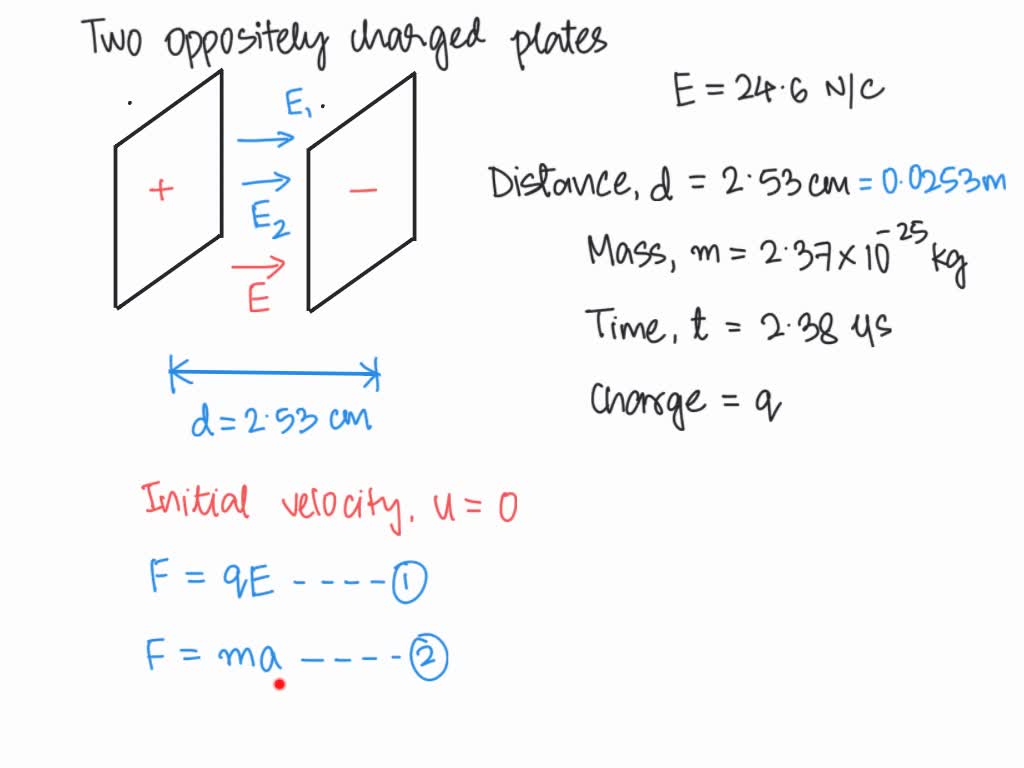 Two oppositely charged plates
E = 24.6 N/C
E₁
+
−
E₂
E
d = 2.53 cm
Distance, d = 2.53 cm = 0.0253m
Mass, m = 2.37 × 10⁻²⁵ kg
Time, t = 2.38 μs
Charge = q
Initial velocity, u = 0
F = qE ---- ①
F = ma ---- ②